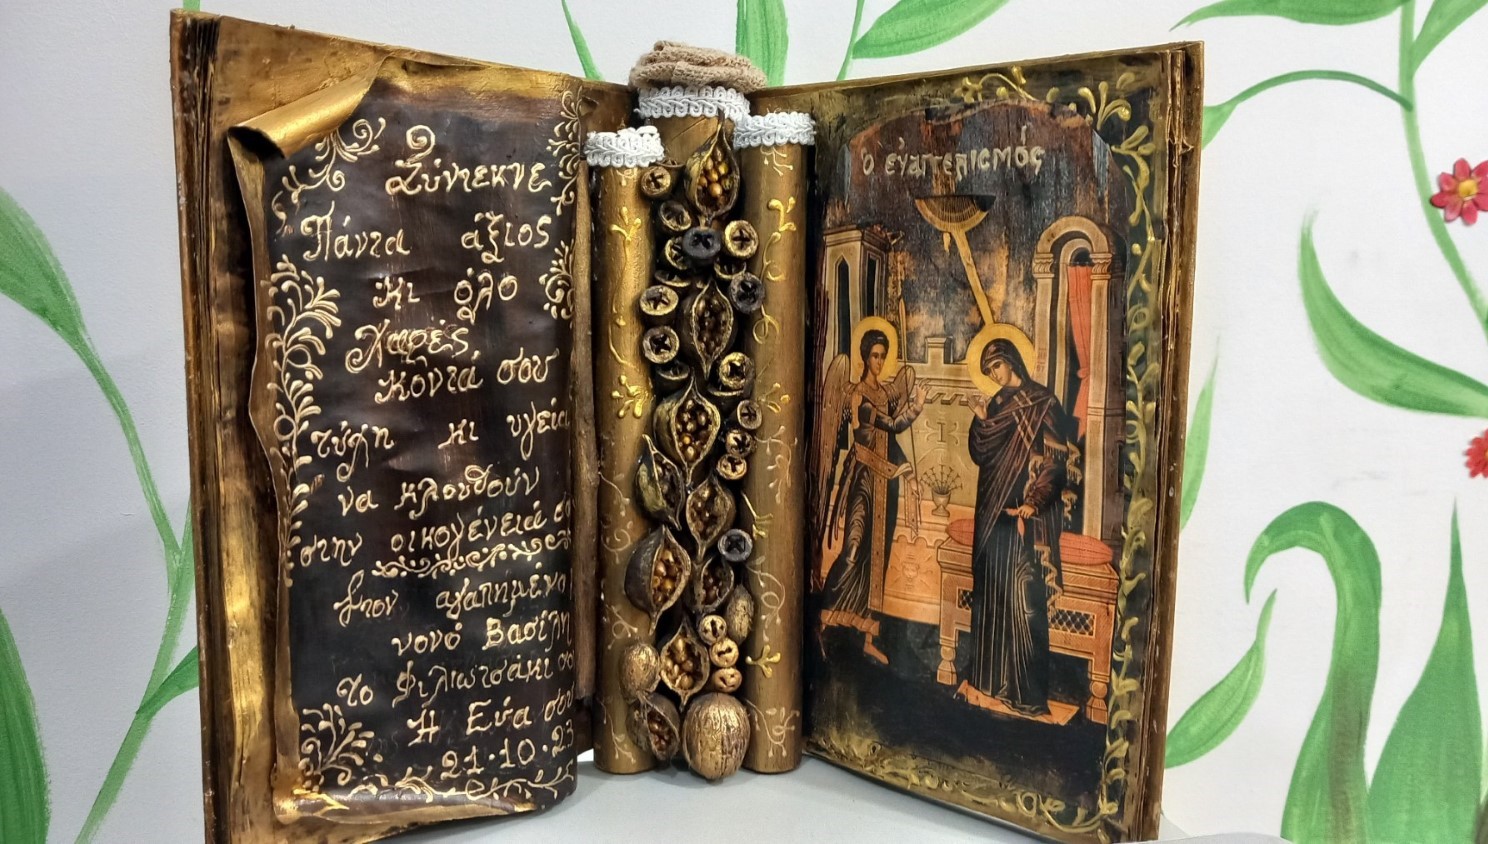 Σύντεκνε
Πάντα άξιος
κι όλο
Χαρές
κοντά σου
τύχη κι υγεία
να κλουθούν
στην οικογένειά σου
Στον αγαπημένο
νονό Βασίλη
το Φιλιωτσάκι σου
Η Εύα σου
21·10·23
ὁ εὐαγγελισμός